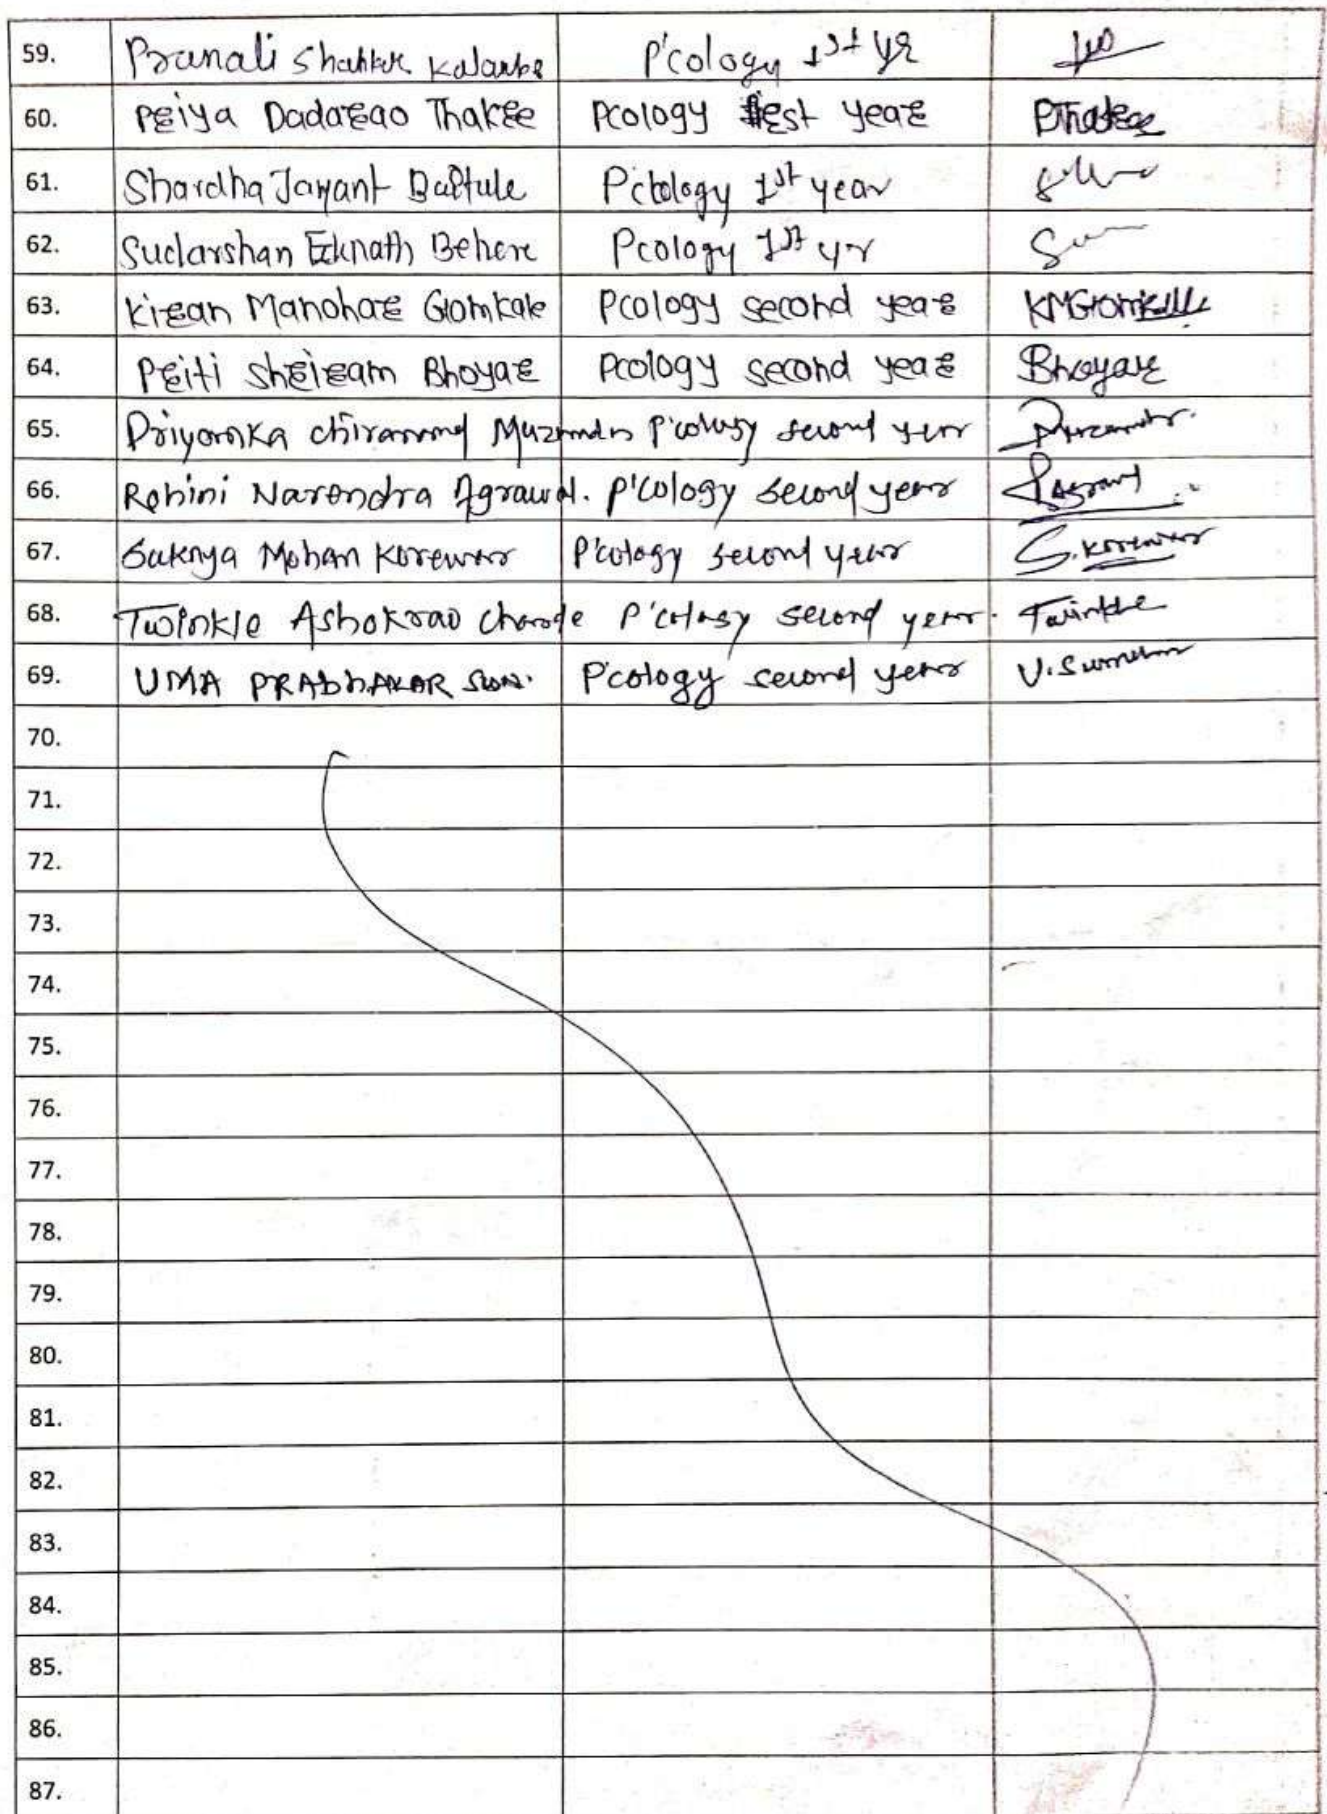 59. Pranali Kalambe P'cology 1st yr
60. Priya Dadarao Thakre Pcology first year PThakre
61. Shardha Jayant Bultule Pcology 1st year
62. Sudarshan Eknath Behere Pcology 1st yr
63. Kiran Manohar Gomkale Pcology second year KMGomkale
64. Priti Shriram Bhoyar Pcology second year Bhoyar
65. Priyanka Muzumdar P'cology second year
66. Rohini Narendra Agrawal. P'cology second year RAgrawal
67. Suknya Mohan Korewar P'cology second year S.Korewar
68. Twinkle Ashokrao Charde P'cology second year. Twinkle
69. UMA PRABHAKAR P'cology second year
70.
71.
72.
73.
74.
75.
76.
77.
78.
79.
80.
81.
82.
83.
84.
85.
86.
87.